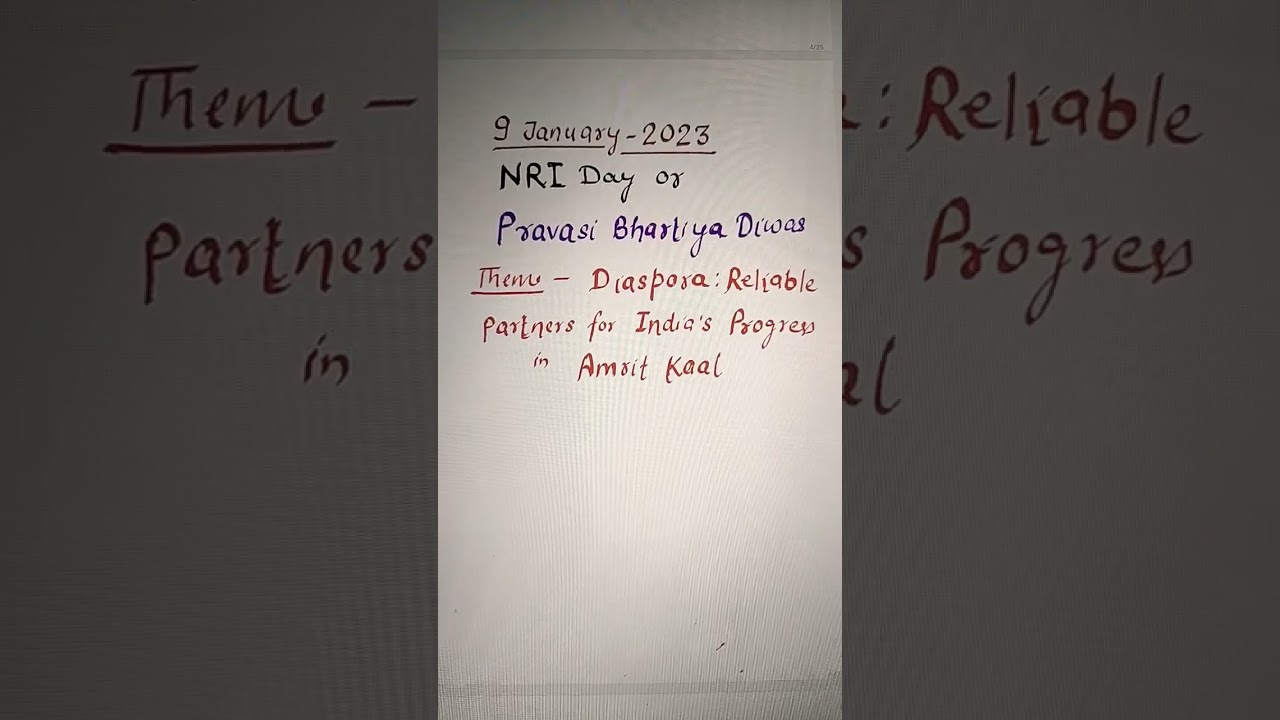 4/25
9 January-2023
NRI Day or
Pravasi Bhartiya Diwas
Theme - Diaspora: Reliable
Partners for India's Progress
in Amrit Kaal